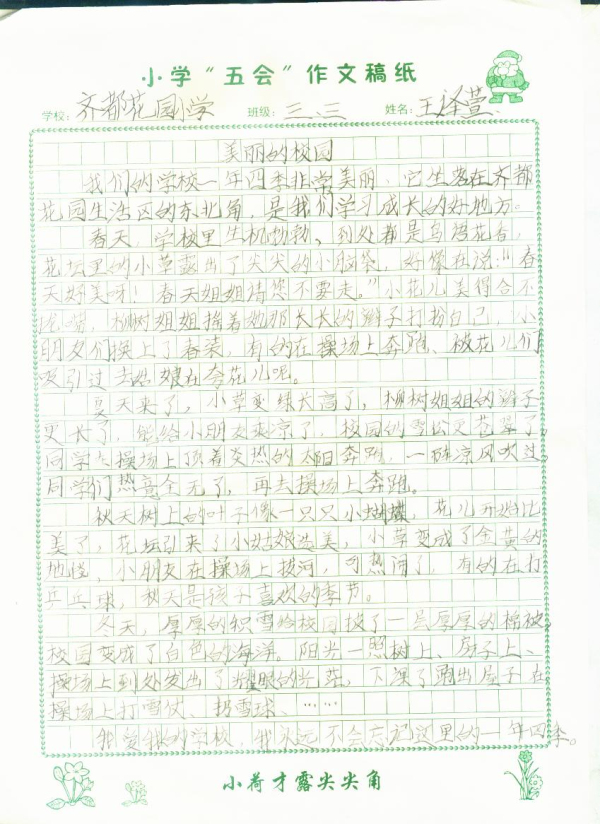 小学“五会”作文稿纸
学校: 齐都花园小学 班级: 三、三 姓名: 王泽萱
美丽的校园
我们的学校一年四季非常美丽、它坐落在齐都
花园生活区的东北角，是我们学习成长的好地方。
春天，学校里生机勃勃、到处都是鸟语花香，
花坛里的小草露出了尖尖的小脑袋，好像在说："春
天好美呀！春天姐姐请您不要走。"小花儿美得合不
拢嘴，柳树姐姐摇着她那长长的辫子打扮自己，小
朋友们换上了春装，有的在操场上奔跑、被花儿们
吸引过去姑娘在夸花儿呢。
夏天来了，小草变绿长高了，柳树姐姐的辫子
更长了，能给小朋友乘凉了，校园的雪公更茂翠了。
同学在操场上顶着炎热的太阳奔跑，一阵凉风吹过。
同学们热意全无了，再去操场上奔跑。
秋天树上的叶子像一只只小蝴蝶，花儿开始比
美了，花坛引来了小姑娘选美，小草变成了金黄的
地毯，小朋友在操场上拔河，可热闹了，有的在打
乒乓球，秋天是孩子喜欢的季节。
冬天，厚厚的积雪给校园披了一层厚厚的棉被，
校园变成了白色的海洋。阳光一照树上、房子上、
操场上到处发出了耀眼的光芒，下课了跑出屋子在
操场上打雪仗、扔雪球……
我爱我的学校，我永远不会忘记这里的一年四季。
小荷才露尖尖角